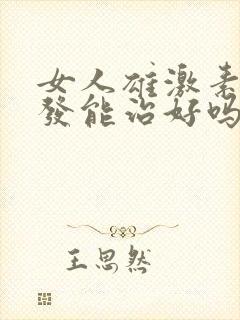 女人雄激素
發能治好吗
王思然